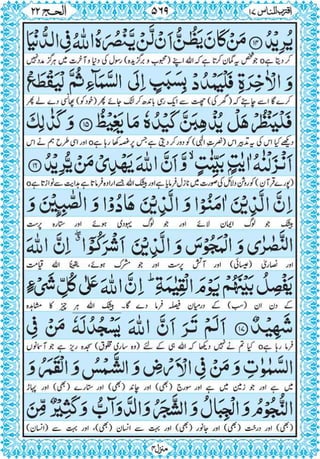 اقترب للناس ١٧ ٥٦٩ الحج ٢٢
يُرِيْدُ ﴿١٤﴾ مَنْ كَانَ يَظُنُّ اَنْ لَّنْ يَّنْصُرَهُ اللّٰهُ فِي الدُّنْيَا
کر دیتا ہے o جو شخص یہ گمان کرتا ہے کہ اللہ اپنے (محبوب و برگزیدہ) رسول کی دنیا و آخرت میں ہرگز مدد نہیں
وَ الْاٰخِرَةِ فَلْيَمْدُدْ بِسَبَبٍ اِلَى السَّمَآءِ ثُمَّ لْيَقْطَعْ
کرے گا اسے چاہئے کہ (گھر کی) چھت سے ایک رسی باندھ کر لٹک جائے پھر (خود کو) پھانسی دے لے پھر
فَلْيَنْظُرْ هَلْ يُذْهِبَنَّ كَيْدُهٗ مَا يَغِيْظُ ﴿١٥﴾ وَ كَذٰلِكَ
دیکھے کیا اس کی یہ تدبیر اس (نصرتِ الٰہی) کو دور کر دیتی ہے جس پر غصہ کھا رہا ہے o اور اسی طرح ہم نے اس
اَنْزَلْنٰهُ اٰيٰتٍۭ بَيِّنٰتٍ ۙ وَّ اَنَّ اللّٰهَ يَهْدِيْ مَنْ يُّرِيْدُ ﴿١٦﴾
(پورے قرآن) کو روشن دلائل کی صورت میں نازل فرمایا ہے اور بیشک اللہ جسے ارادہ فرماتا ہے ہدایت سے نوازتا ہے o
اِنَّ الَّذِيْنَ اٰمَنُوْا وَ الَّذِيْنَ هَادُوْا وَ الصّٰبِـِٕيْنَ وَ
بیشک جو لوگ ایمان لائے اور جو لوگ یہودی ہوئے اور ستارہ پرست
النَّصٰرٰى وَ الْمَجُوْسَ وَ الَّذِيْنَ اَشْرَكُوْۤا ۖ اِنَّ اللّٰهَ
اور نصارٰی (عیسائی) اور آتش پرست اور جو مشرک ہوئے، یقیناً اللہ قیامت
يَفْصِلُ بَيْنَهُمْ يَوْمَ الْقِيٰمَةِ ؕ اِنَّ اللّٰهَ عَلٰى كُلِّ شَيْءٍ
کے دن ان (سب) کے درمیان فیصلہ فرما دے گا۔ بیشک اللہ ہر چیز کا مشاہدہ
شَهِيْدٌ ﴿١٧﴾ اَلَمْ تَرَ اَنَّ اللّٰهَ يَسْجُدُ لَهٗ مَنْ فِي
فرما رہا ہے o کیا تم نے نہیں دیکھا کہ اللہ ہی کے لئے (وہ ساری مخلوق) سجدہ ریز ہے جو آسمانوں
السَّمٰوٰتِ وَ مَنْ فِي الْاَرْضِ وَ الشَّمْسُ وَ الْقَمَرُ وَ
میں ہے اور جو زمین میں ہے اور سورج (بھی) اور چاند (بھی) اور ستارے (بھی) اور پہاڑ
النُّجُوْمُ وَ الْجِبَالُ وَ الشَّجَرُ وَ الدَّوَآبُّ وَ كَثِيْرٌ مِّنَ
(بھی) اور درخت (بھی) اور جانور (بھی) اور بہت سے انسان (بھی)، اور بہت سے (انسان)
منزل ٤